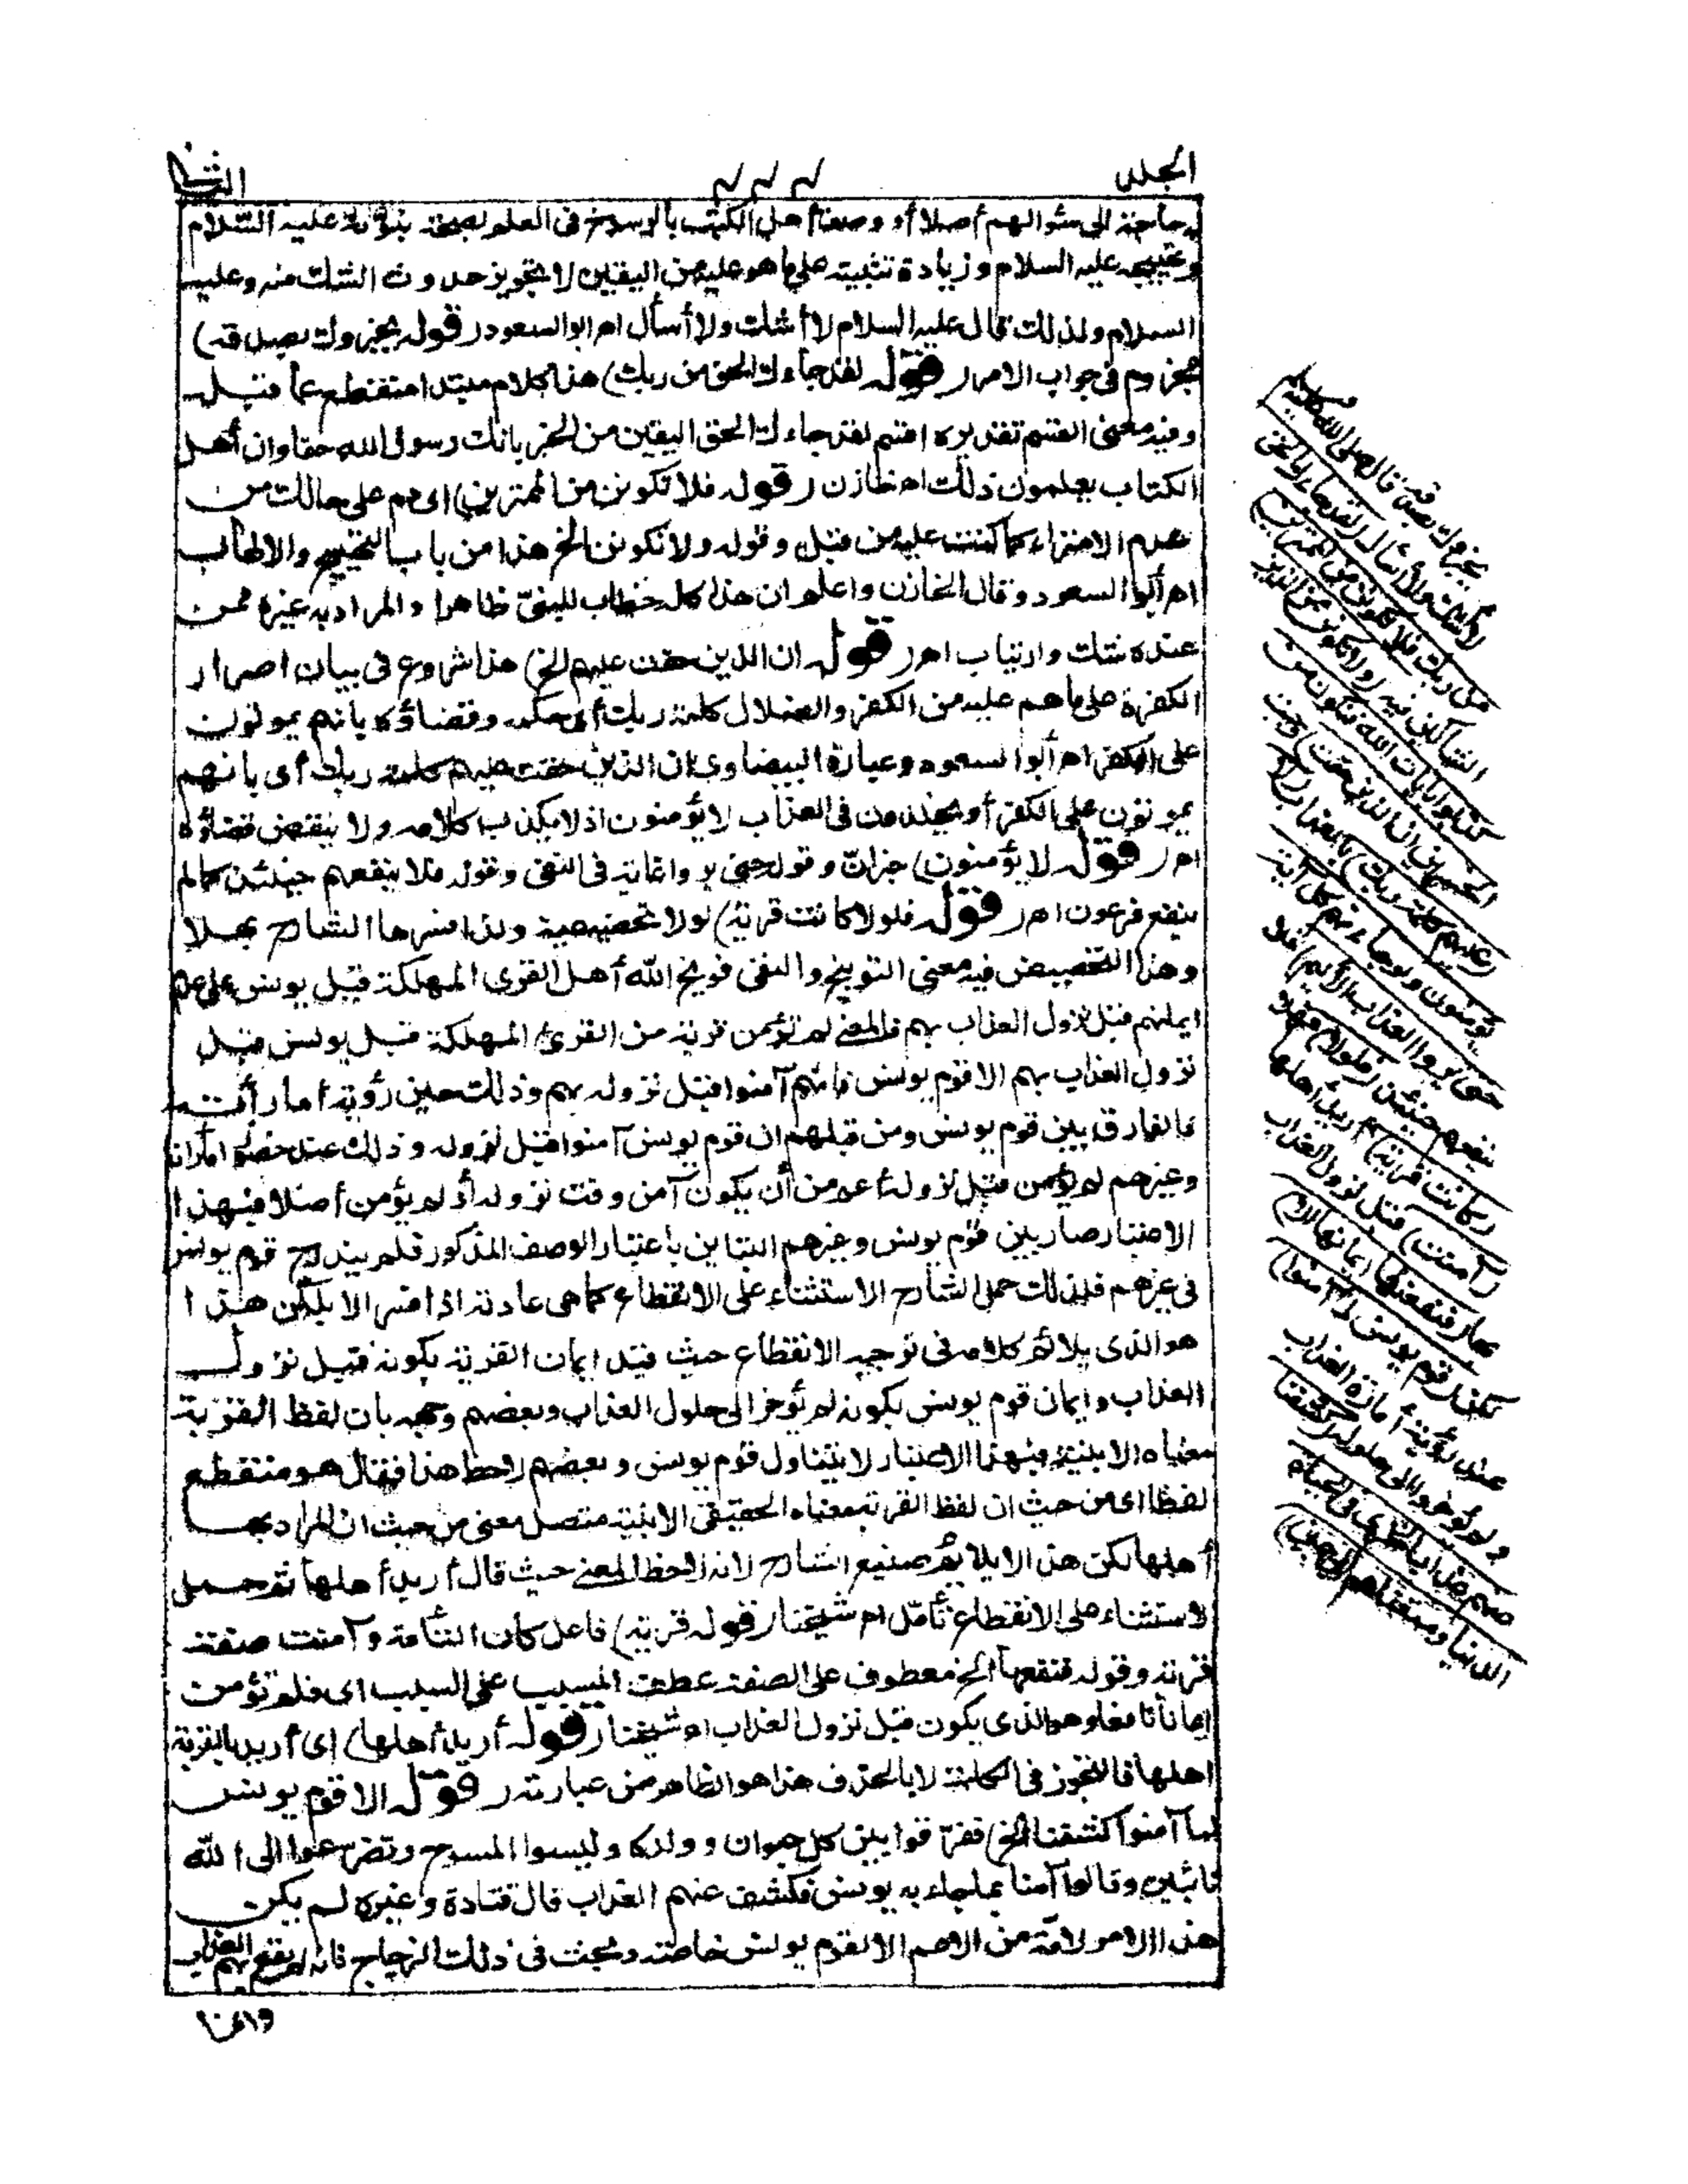 المجلد ٣٧٧ الثانی
له حاجة الى سئوالهم أصلا أو وصفا أهل الكتب بالرسوخ فى العلم بصحة بنوّته عليه السّلام
وتهييجه عليه السلام وزيادة تثبيته على ما هو عليه من اليقين لا تجويز حدوث الشك منه وعليه
السلام ولذلك قال عليه السلام لا أشك ولا أسأل اهـ ابو السعود (قوله يخبروك بصدقه)
مجزوم فى جواب الامر (قوله لقد جاءك الحق من ربك) هذا كلام مبتدا منقطع عما قبله
وفيه معنى القسم تقديره اقسم لقد جاءك الحق اليقين من الخبر بانك رسول الله حقا وان أهل
الكتاب يعلمون ذلك اهـ خازن (قوله فلا تكونن من الممترين) اى دم على حالك من
عدم الامتراء كما كنت عليه من قبل وقوله ولا تكونن الخ هذا من باب التهييج والالهاب
اهـ أبو السعود وقال الخازن واعلم ان هذا كله خطاب للنبىّ ظاهرا والمراد به غيره ممن
عنده شك وارتياب اهـ (قوله ان الذين حقت عليهم الخ) هذا شروع فى بيان اصرار
الكفرة على ما هم عليه من الكفر والضلال كلمة ربك أى حكمه وقضاؤه بانهم يموتون
على الكفر اهـ أبو السعود وعبارة البيضاوى ان الذين حقت عليهم كلمة ربك أى بانهم
يموتون على الكفر أو يخلدون فى العذاب لا يؤمنون اذ لا يكذب كلامه ولا ينقض قضاؤه
اهـ (قوله لا يؤمنون) خبر ان وقوله حتى يروا غاية فى النفى وقوله فلا ينفعهم حينئذ كما لم
ينفع فرعون اهـ (قوله فلولا كانت قرية) لولا تحضيضية ولذا فسرها الشارح بهلا
وهذا التحضيض فيه معنى التوبيخ والنفى فوبخ الله أهل القرى المهلكة قبل يونس على عدم
ايمانهم قبل نزول العذاب بهم فالمعنى لم تؤمن قرية من القرى المهلكة قبل يونس قبل
نزول العذاب بهم الا قوم يونس فانهم آمنوا قبل نزوله بهم وذلك حين رؤية أماراته
فالفارق بين قوم يونس ومن قبلهم ان قوم يونس آمنوا قبل نزوله وذلك عند حضور أماراته
وغيرهم لم يؤمن قبل نزوله أعم من أن يكون آمن وقت نزوله أو لم يؤمن أصلا فبهذا
الاعتبار صار بين قوم يونس وغيرهم التباين باعتبار الوصف المذكور فلم يندرج قوم يونس
فى غيرهم فلذلك حمل الشارح الاستثناء على الانقطاع كما هى عادته اذا فسر الا بلكن هذا
هو الذى يلائم كلامه فى توجيه الانقطاع حيث قيد ايمان القرية بكونه قبل نزول
العذاب وايمان قوم يونس بكونه لم يؤخر الى حلول العذاب وبعضهم وجهه بان لفظ القرية
معناه الابنية فبهذا الاعتبار لا يتناول قوم يونس وبعضهم لاحظ هذا فقال هو منقطع
لفظا اى من حيث ان لفظ القرية بمعناه الحقيقى الابنية متصل معنى من حيث ان المراد بها
أهلها لكن هذا لا يلائم صنيع الشارح لانه لاحظ المعنى حيث قال أريد أهلها ثم حمل
الاستثناء على الانقطاع تأمّل اهـ شيخنا (قوله قرية) فاعل كان التامة وآمنت صفة
قرية وقوله فنفعها الخ معطوف على الصفة عطف المسبب على السبب اى فلم تؤمن
ايمانا نافعا وهو الذى يكون قبل نزول العذاب اهـ شيخنا (قوله أريد أهلها) اى أريد بالقرية
اهلها فالتجوز فى الكلمة لا بالحذف هذا هو الظاهر من عبارته (قوله الا قوم يونس
لما آمنوا كشفنا الخ) ففرّقوا بين كل حيوان وولدها ولبسوا المسوح وتضرعوا الى الله
تائبين وقالوا آمنا بما جاء به يونس فكشف عنهم العذاب قال قتادة وغيره لم يكن
هذا الامر لامة من الامم الا لقوم يونس خاصة وبحث فى ذلك الزجاج فانه لم يقع بهم العذاب
وانما
يخبروك بصدقه قال صلى الله عليه وسلم
لا أشك ولا أسأل (لقد جاءك الحق
من ربك فلا تكونن من الممترين)
الشاكين فيه (ولا تكونن من الذين
كذبوا بآيات الله فتكون من
الخسرين ان الذين حقت) وجبت
(عليهم كلمة ربك) بالعذاب (لا
يؤمنون ولو جاءتهم كل آية
حتى يروا العذاب الأليم) فلا
ينفعهم حينئذ (فلولا) فهلا
(كانت قرية) أريد أهلها
(آمنت) قبل نزول العذاب
بها (فنفعها ايمانها الا)
لكن (قوم يونس لما آمنوا)
عند رؤية أمارة العذاب
ولم يؤخروا الى حلوله (كشفنا
عنهم عذاب الخزى فى الحياة
الدنيا ومتعناهم الى حين)